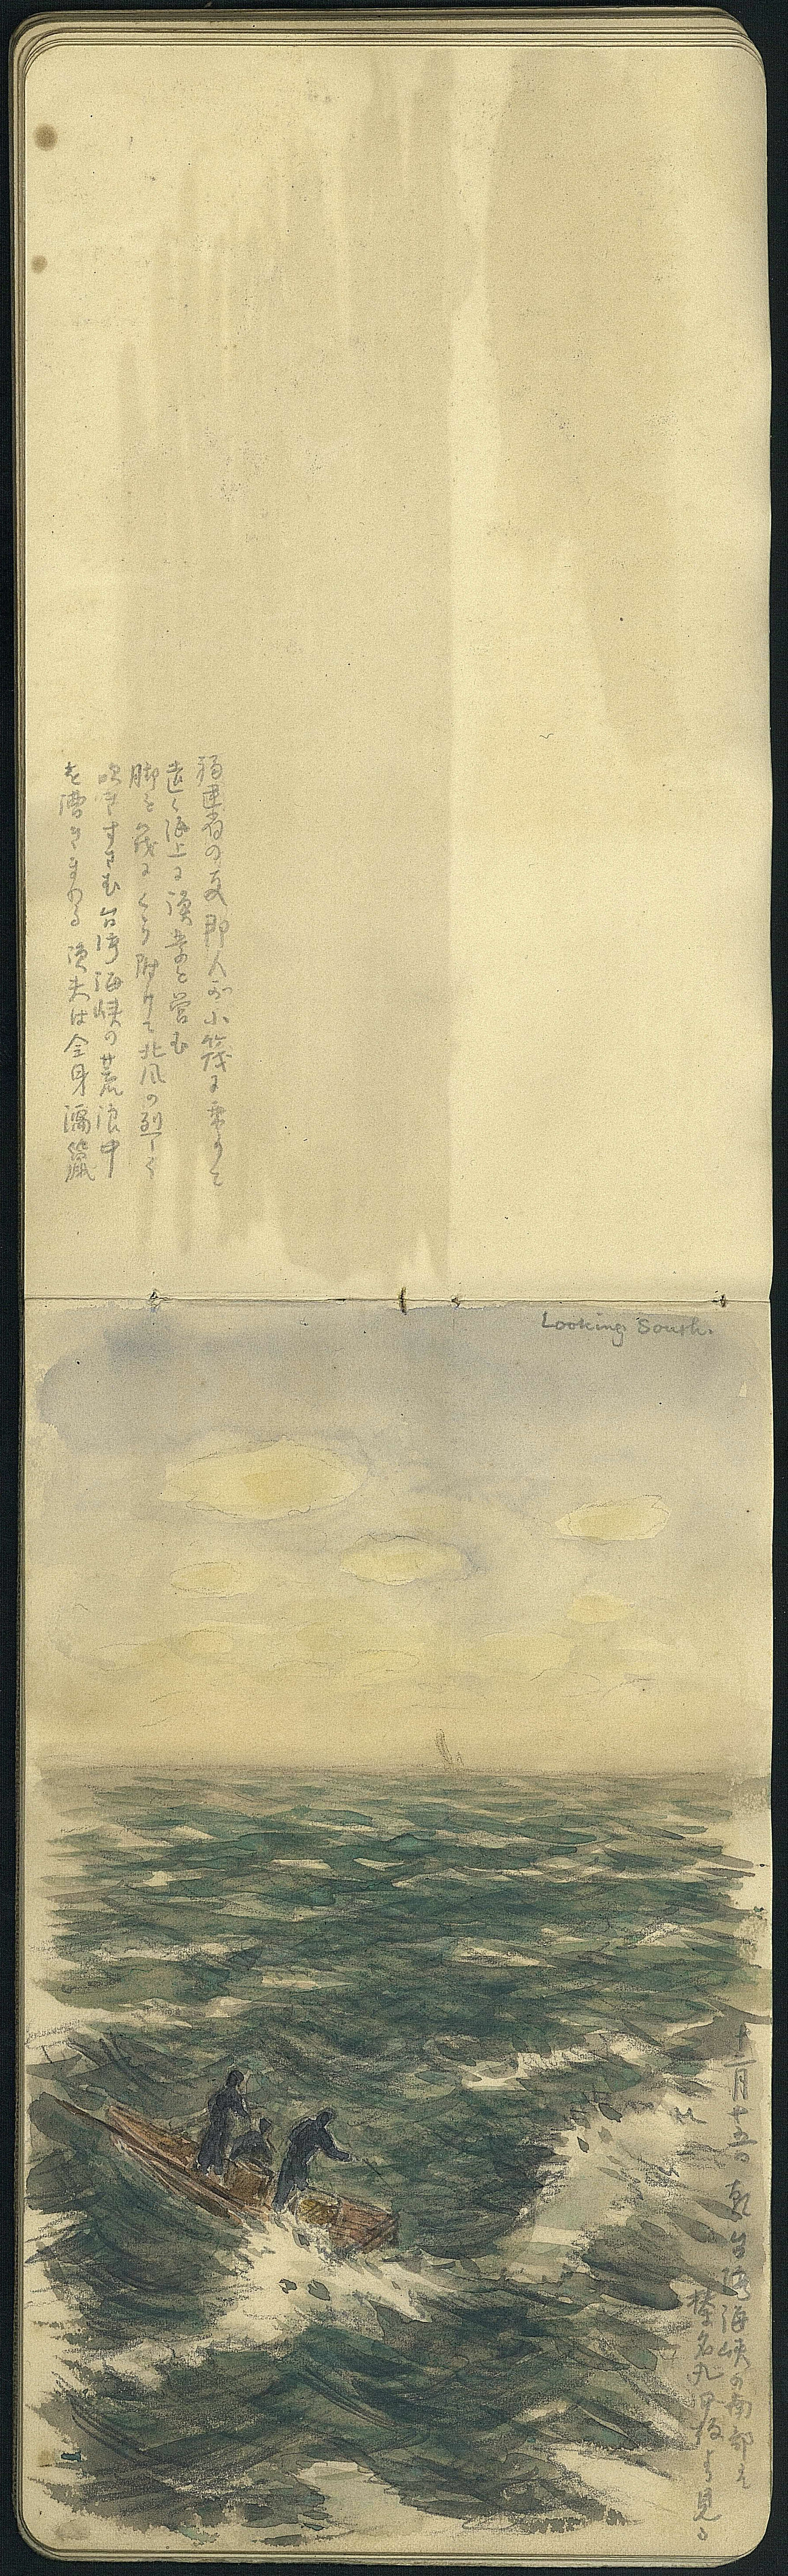 福建省の支那人が小筏に乗りて
遠く海上に漁業を営む
脚を筏にくゝり附けて北風の烈しく
吹きすさむ台湾海峡の荒浪中
を漕きまわる漁夫は全身濡鼠
Looking South.
十一月十五日 朝 台湾海峡の南部を
榛名丸甲板より見る